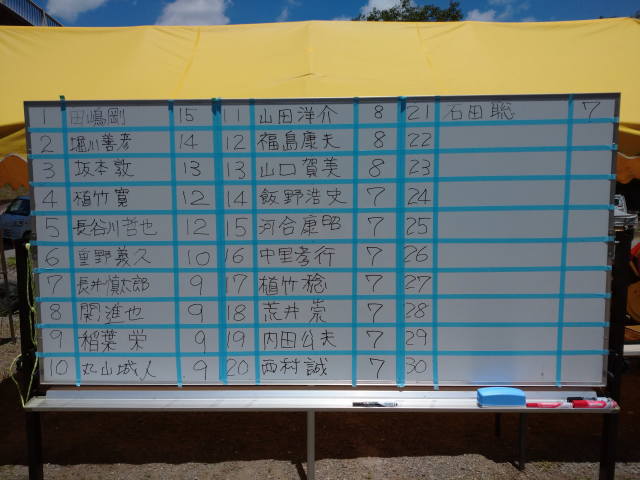 1 田嶋剛 15 11 山田洋介 8 21 石田聡 7
2 堀川善彦 14 12 福島康夫 8 22
3 坂本敦 13 13 山口賀美 8 23
4 植竹寛 12 14 飯野浩史 7 24
5 長谷川哲也 12 15 河合康昭 7 25
6 重野義久 10 16 中里孝行 7 26
7 長井慎太郎 9 17 植竹稔 7 27
8 関進也 9 18 荒井崇 7 28
9 稲葉栄 9 19 内田公夫 7 29
10 丸山城人 9 20 西村誠 7 30